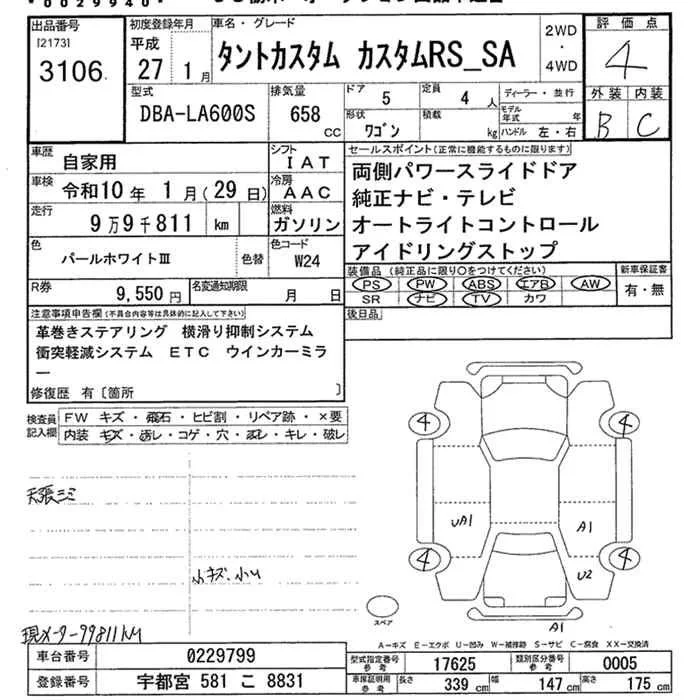 *0029940*
出品番号 [2173] 3106
初度登録年月 平成 27 年 1 月
車名・グレード タントカスタム カスタムRS_SA
2WD・4WD
評価点 4
外装 B 内装 C
型式 DBA-LA600S
排気量 658 cc
ドア 5
定員 4 人
形状 ワゴン
積載 kg
ディーラー・並行
モデル年式 年
ハンドル 左・右
車歴 自家用
シフト IAT
車検 令和10年 1月(29日)
冷房 AAC
走行 9万9千811 km
燃料 ガソリン
色 パールホワイトⅢ 色替
色コード W24
R券 9,550円
名変通知期限 月 日
セールスポイント(正常に機能するものに限ります)
両側パワースライドドア
純正ナビ・テレビ
オートライトコントロール
アイドリングストップ
装備品(純正品に限り○をつけてください)
PS PW ABS エアB AW
SR ナビ TV カワ
新車保証書 有・無
後日品
注意事項申告欄(不具合内容等は具体的に記入して下さい)
革巻きステアリング 横滑り抑制システム
衝突軽減システム ETC ウインカーミラ
ー
修復歴 有〔箇所 〕
検査員記入欄
FW キズ・飛石・ヒビ割・リペア跡・×要
内装 キズ・汚レ・コゲ・穴・スレ・キレ・破レ
天張シミ
小キズ、小U
現メーター99811km
4 4
UA1 A1
4 4
U2
スペア
A1
A－キズ E－エクボ U－凹み W－補修跡 S－サビ C－腐食 XX－交換済
車台番号 0229799
型式指定番号 参考 17625
類別区分番号 参考 0005
登録番号 宇都宮 581 こ 8831
車庫証明用 参考 長さ 339 cm 幅 147 cm 高さ 175 cm